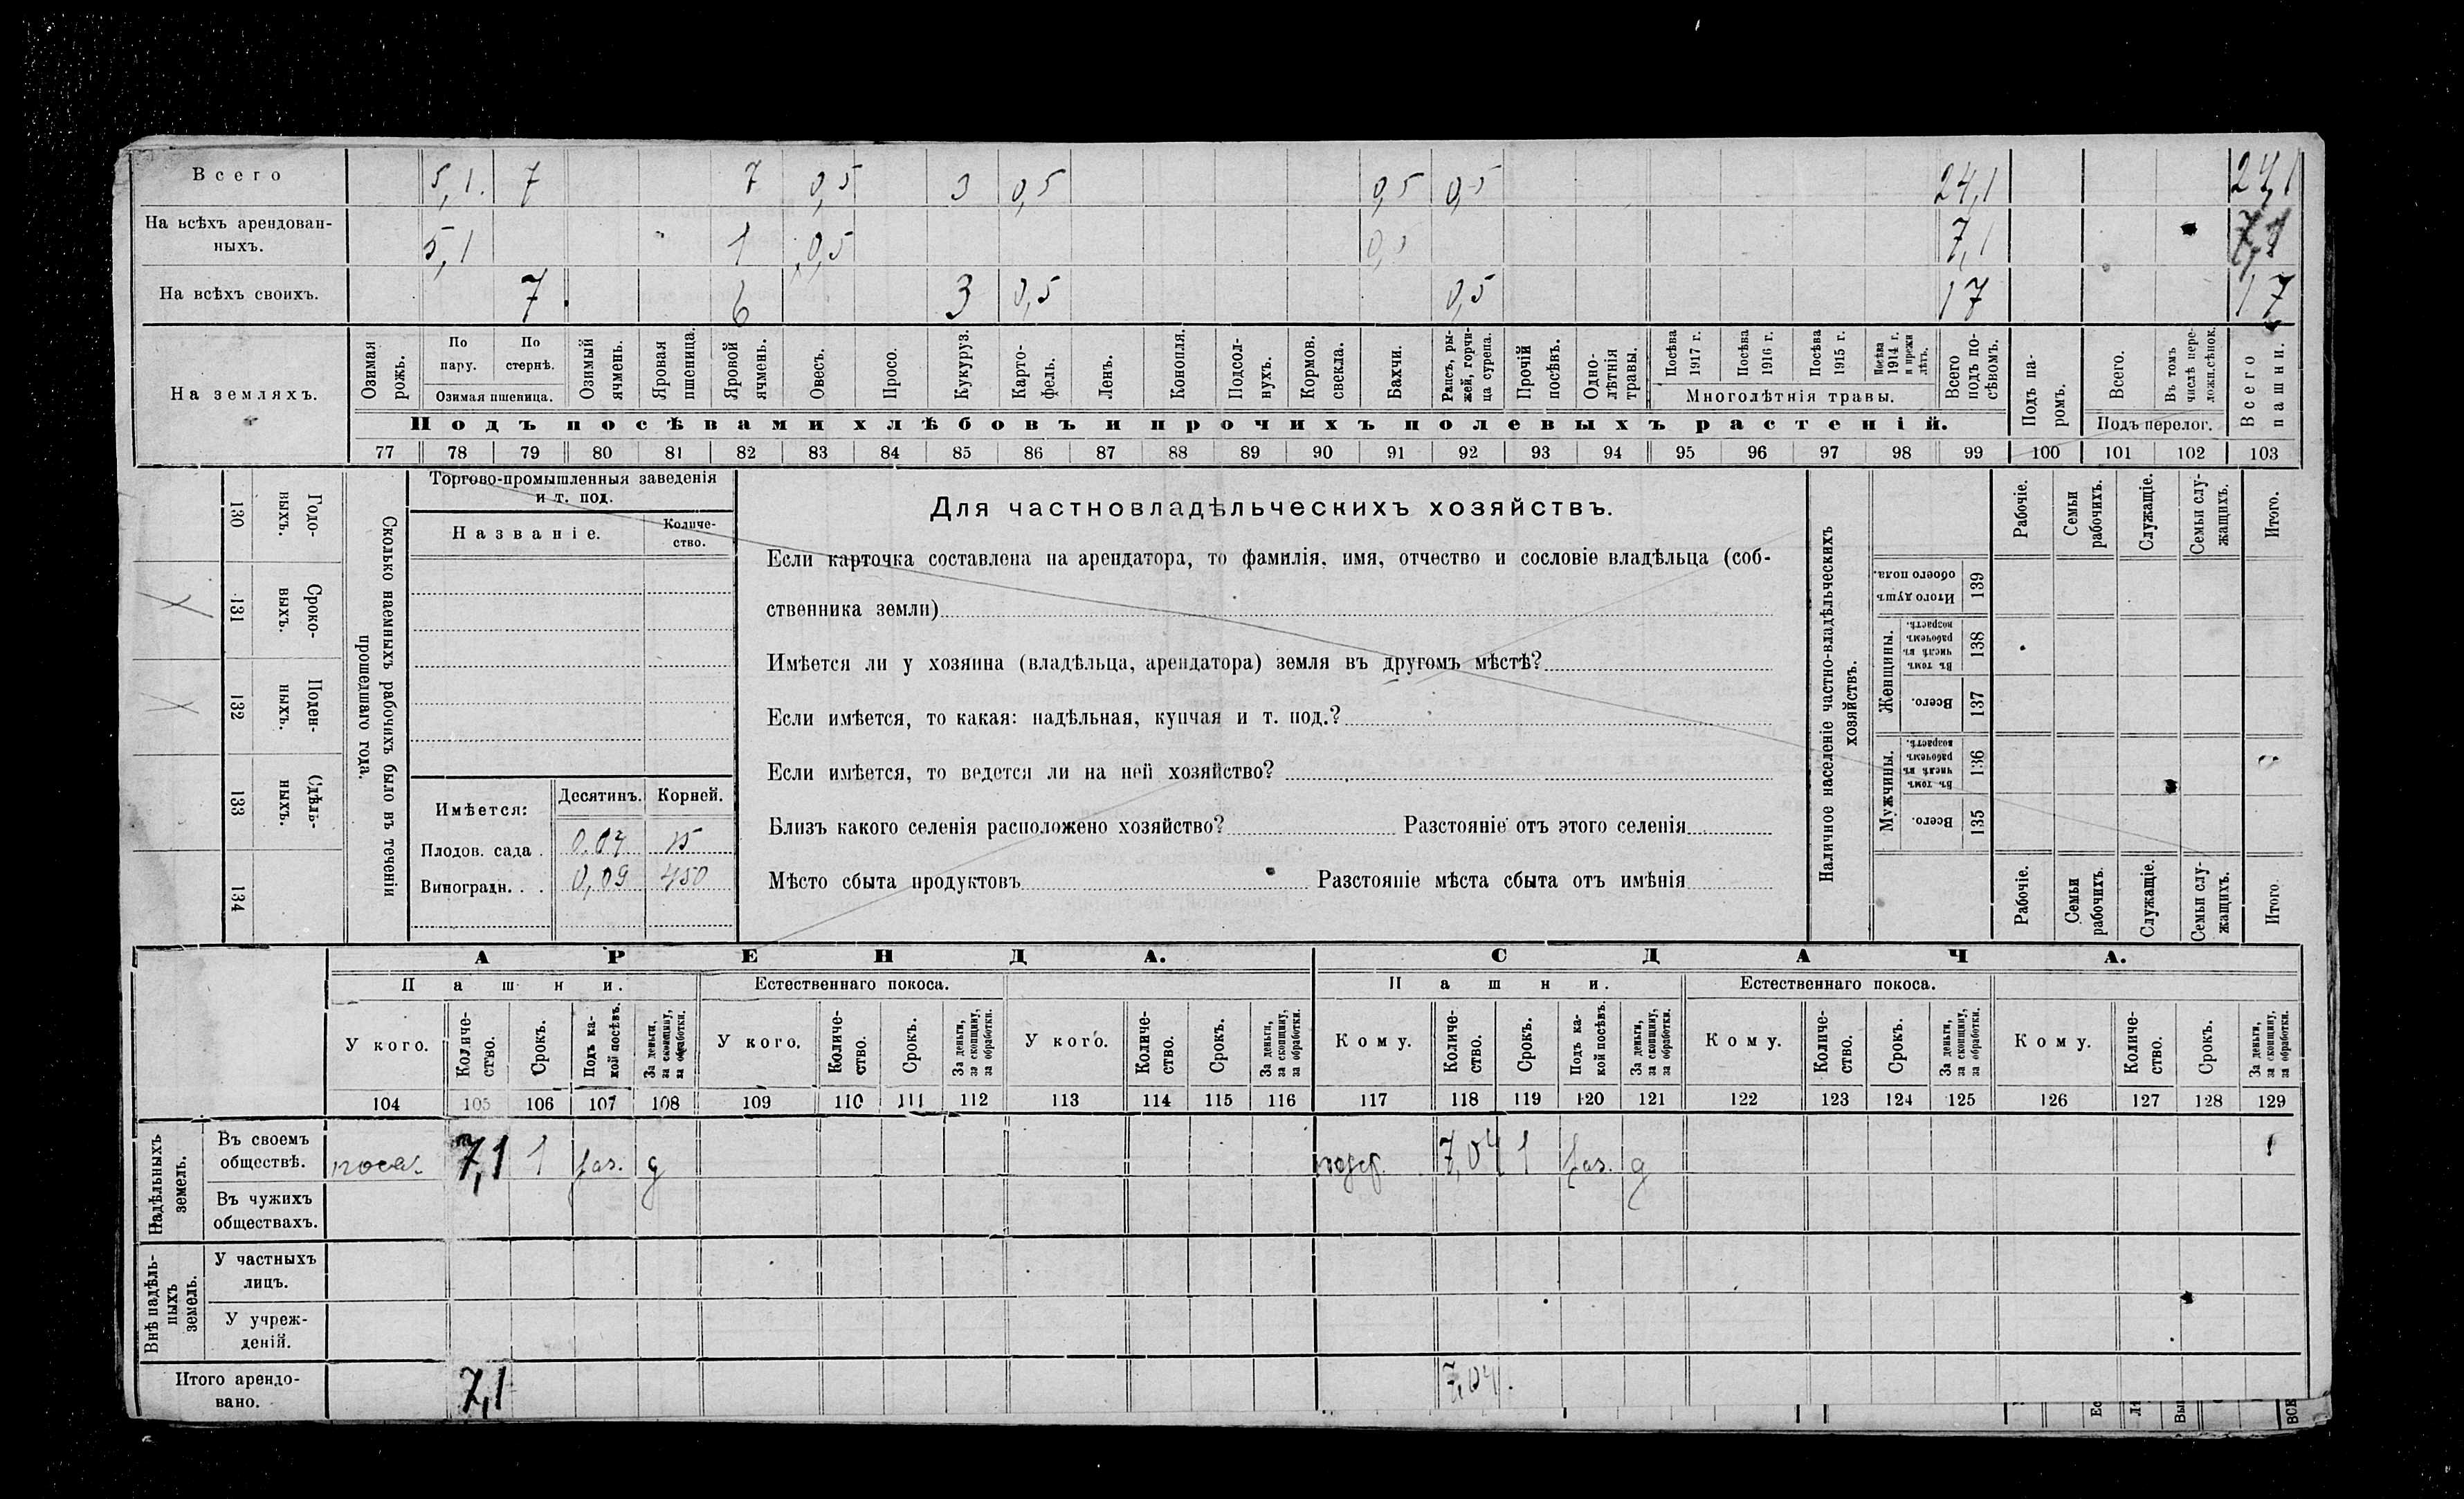 Всего 5,1. 7 7 0,5 3 0,5 0,5 0,5 24,1 24,1
На всѣхъ арендован-
ныхъ. 5,1 1 0,5 0,5 7,1 7,1
На всѣхъ своихъ. 7 6 3 0,5 0,5 17 17
На земляхъ.
Озимая рожь.
По пару.
По стернѣ.
Озимая пшеница.
Озимый ячмень.
Яровая пшеница.
Яровой ячмень.
Овесъ.
Просо.
Кукуруз.
Карто-
фель.
Ленъ.
Конопля.
Подсол-
нухъ.
Кормов. свекла.
Бахчи.
Рапсъ, ры-
жей, горчи-
ца сурепа.
Прочій посѣвъ.
Одно-
лѣтнія травы.
Посѣва 1917 г.
Посѣва 1916 г.
Посѣва 1915 г.
Посѣва 1914 г. и прежн лѣтъ.
Многолѣтнія травы.
Всего подъ по-
сѣвомъ.
Подъ па-
ромъ.
Всего.
Въ томъ числѣ пере-
ложн.сѣнок.
Подъ перелог.
Всего пашни.
Подъ посѣвами хлѣбовъ и прочихъ полевыхъ растеній.
77 78 79 80 81 82 83 84 85 86 87 88 89 90 91 92 93 94 95 96 97 98 99 100 101 102 103
Годо-
выхъ.
130
Сроко-
выхъ.
131
Поден-
ныхъ.
132
Сдѣль-
ныхъ.
133
134
Сколько наемныхъ рабочихъ было въ теченіи
прошедшаго года.
Торгово-промышленныя заведенія
и т. под.
Названіе.
Количе-
ство.
Имѣется: Десятинъ. Корней.
Плодов. сада . 0.07 15
Виноградн. . . 0,09 450
Для частновладѣльческихъ хозяйствъ.
Если карточка составлена на арендатора, то фамилія, имя, отчество и сословіе владѣльца (соб-
ственника земли)
Имѣется ли у хозяина (владѣльца, арендатора) земля въ другомъ мѣстѣ?
Если имѣется, то какая: надѣльная, купчая и т. под.?
Если имѣется, то ведется ли на ней хозяйство?
Близъ какого селенія расположено хозяйство? Разстояніе отъ этого селенія
Мѣсто сбыта продуктовъ Разстояніе мѣста сбыта отъ имѣнія
Наличное населеніе частно-владѣльческихъ
хозяйствъ.
Рабочіе.
Семьи рабочихъ.
Служащіе.
Семьи слу-
жащихъ.
Итого.
Итого душъ обоего пола. 139
Женщины.
Въ томъ числѣ въ рабочемъ возрастѣ. 138
Всего. 137
Мужчины.
Въ томъ числѣ въ рабочемъ возрастѣ. 136
Всего. 135
Рабочіе.
Семьи рабочихъ.
Служащіе.
Семьи слу-
жащихъ.
Итого
АРЕНДА. СДАЧА.
Пашни. Естественнаго покоса. Пашни. Естественнаго покоса.
У кого.
Количе-
ство.
Срокъ.
Подъ ка-
кой посѣвъ.
За деньги, за скопщину, за обработки.
У кого.
Количе-
ство.
Срокъ.
За деньги, за скопщину, за обработки.
У кого.
Количе-
ство.
Срокъ.
За деньги, за скопщину, за обработки.
Кому.
Количе-
ство.
Срокъ.
Подъ ка-
кой посѣвъ.
За деньги, за скопщину, за обработки.
Кому.
Количе-
ство.
Срокъ.
За деньги, за скопщину, за обработки.
Кому.
Количе-
ство.
Срокъ.
За деньги, за скопщину, за обработки.
104 105 106 107 108 109 110 111 112 113 114 115 116 117 118 119 120 121 122 123 124 125 126 127 128 129
Надѣльныхъ земель.
Въ своемъ
обществѣ. 7,1 1 7,04 1
Въ чужихъ
обществахъ.
Внѣ надѣль-
ныхъ земель.
У частныхъ
лицъ.
У учреж-
деній.
Итого арендо-
вано. 7,1 7,04.